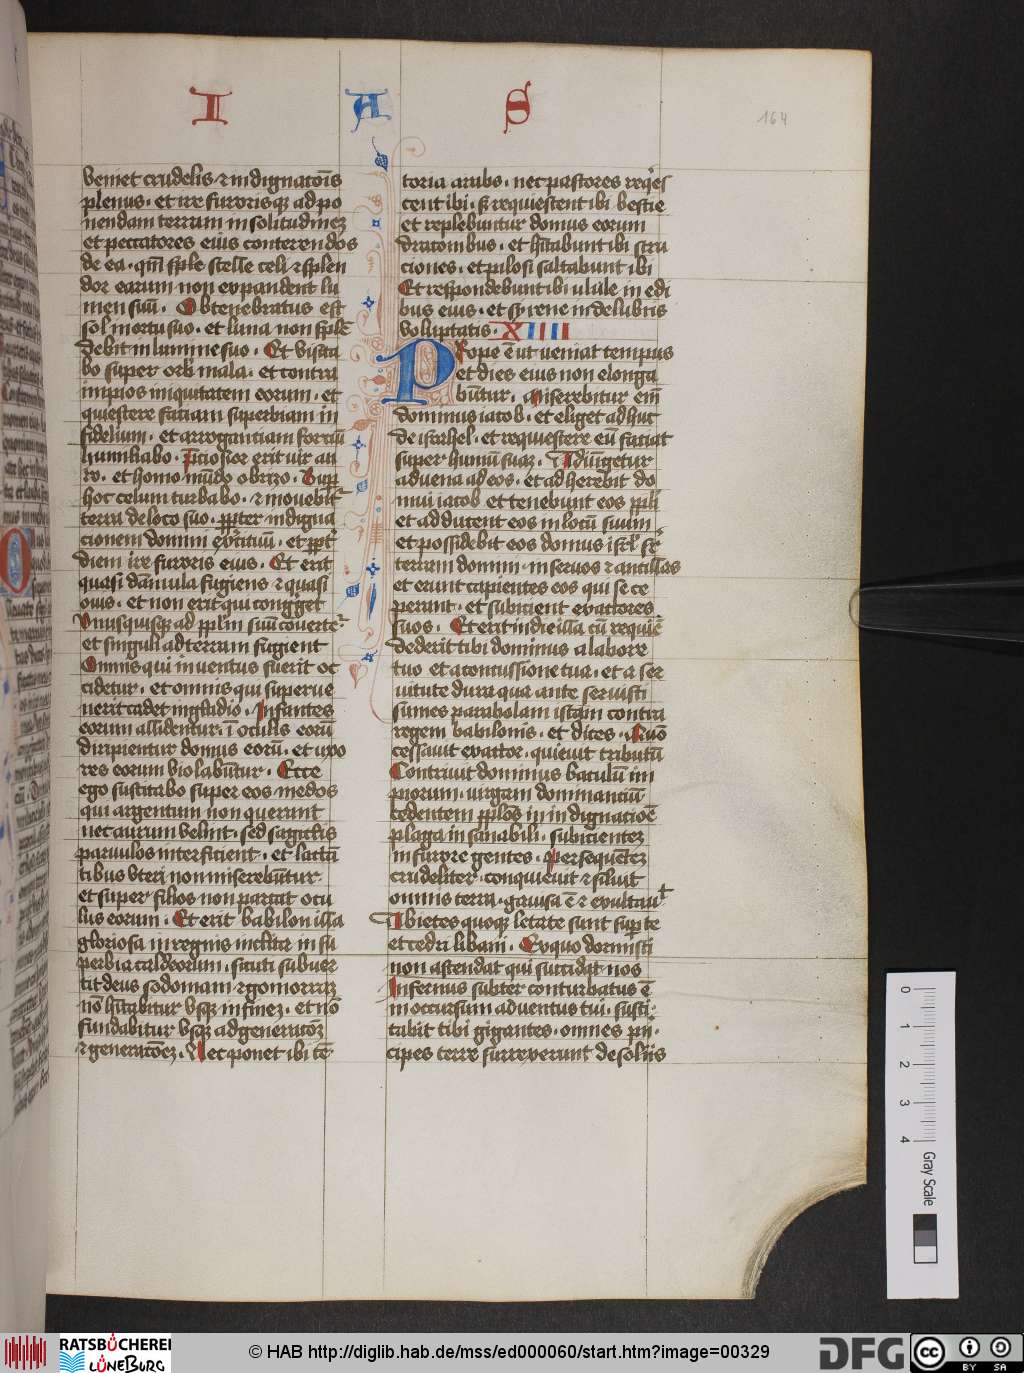 I A S
164
veniet crudelis ⁊ indignatōis
plenus · et ire furorisqꝫ ad po
nendam terram in solitudineꝫ
et peccatores eius conterendos
de ea · qm̄ sple stelle celi ⁊ splen
dor earum non expandent lu
men suū · Obtenebratus est
sol in ortu suo · et luna non splē
debit in lumine suo · Et visita
bo super orb mala · et contra
impios iniquitatem eorum · et
quiescere faciam superbiam in
fidelium · et arrogantiam fortiū
humiliabo · p̄ciosior erit vir au
ro · et homo mūdo obrizo · Sup
hoc celum turbabo · ⁊ movebit᷑
terra de loco suo · ꝓpter indigna
cionem domini exercituū · et ꝓpt᷑
diem ire furoris eius · Et erit
quasi dāmula fugiens ⁊ quasi
ouis · et non erit qui congget
Unusquisqꝫ ad pplm suū cōuerte᷑
et singuli ad terram fugient
Omnis qui inuentus fuerit oc
cidetur · et omnis qui superue
nerit cadet in gladio · Infantes
eorum allidentur · ī oculis eorū
diripientur domus eorū · et uxo
res eorum violabūtur · Ecce
ego suscitabo super eos medos
qui argentum non querant
nec aurum velint · sed sagittis
paruulos interficient · et lactā
tibus vteri non miserebūtur ·
et super filios non parcat ocu
lus eorum · Et erit babilon illa
gloriosa in regnis inclita in su
perbia caldeorum · sicuti subuer
tit deus sodomam ⁊ gomorraꝫ
nō hītabitur vsqꝫ in fineꝫ · et nō
fundabitur vsqꝫ ad generatōꝫ
⁊ generatōeꝫ · Nec ponet ibi tē
toria arabs · nec pastores reqⁱes
cent ibi · sꝫ requiescent ibi bestie
et replebuntur domus eorum
draconibus · et hītabunt ibi stru
ciones · et pilosi saltabunt ibi
Et respondebunt ibi ulule in edi
bus eius · et syrene in delubris
voluptatis · XIIII
Prope ē ut ueniat tempus
et dies eius non elonga
būtur · Miserebitur em̄
dominus iacob · et eliget adhuc
de israhel · et requiescere eū faciat
super humū suaꝫ · Adiūgetur
aduena ad eos · et adherebit do
mui iacob et tenebunt eos ppli
et adducent eos in locū suum
et possidebit eos domus isrl̄ sr̄
terram domini in seruos ⁊ ancillas
et erunt capientes eos qui se ce
perant · et subicient exactores
suos · Et erit in die illa cū requiē
dederit tibi dominus a labore
tuo et a concussione tua · et a ser
uitute dura qua ante seruisti
sumes parabolam istam contra
regem babilonis · et dices · Quō
cessauit exactor · quieuit tributū
Contriuit dominus baculū im
piorum · uirgam dominantiū
cedentem pplōs in indignatioē
plaga insanabili · subicienteꝫ
in furore gentes · persequēteꝫ
crudeliter · conquieuit ⁊ siluit
omnis terra · gauisa ē ⁊ exultauᵗ
Abietes quoqꝫ letate sunt sup te
et cedri libani · Ex quo dormisti
non ascendat qui succidat nos
Infernus subter conturbatus ē
in occursum aduentus tui · susci
tabit tibi gigantes · omnes prī
cipes terre surrexerunt de soliis
0 1 2 3 4
Gray Scale
RATSBÜCHEREI
LÜNEBURG
© HAB http://diglib.hab.de/mss/ed000060/start.htm?image=00329
DFG
cc BY SA